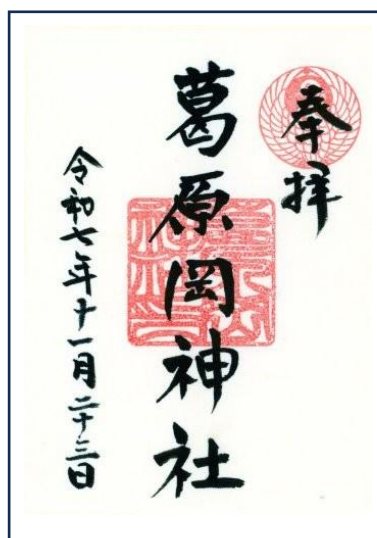 奉拝
葛原岡神社
令和七年十一月二十三日